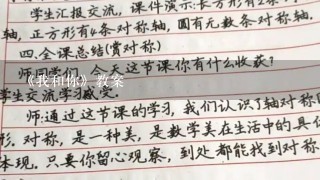 学生汇报交流，课件演示：长方形有2条
轴，正方形有4条对称轴，圆有无数条对称轴.
四.全课总结(赏对称)
师:同学们，今天这节课你有什么收获?
《我和你》教案
学生交流学习感受.
师:通过这节课的学习，我们认识了轴对称
形.对称，是一种美，是数学美在生活中的具体
体现.只要你留心观察，到处都能找到对称